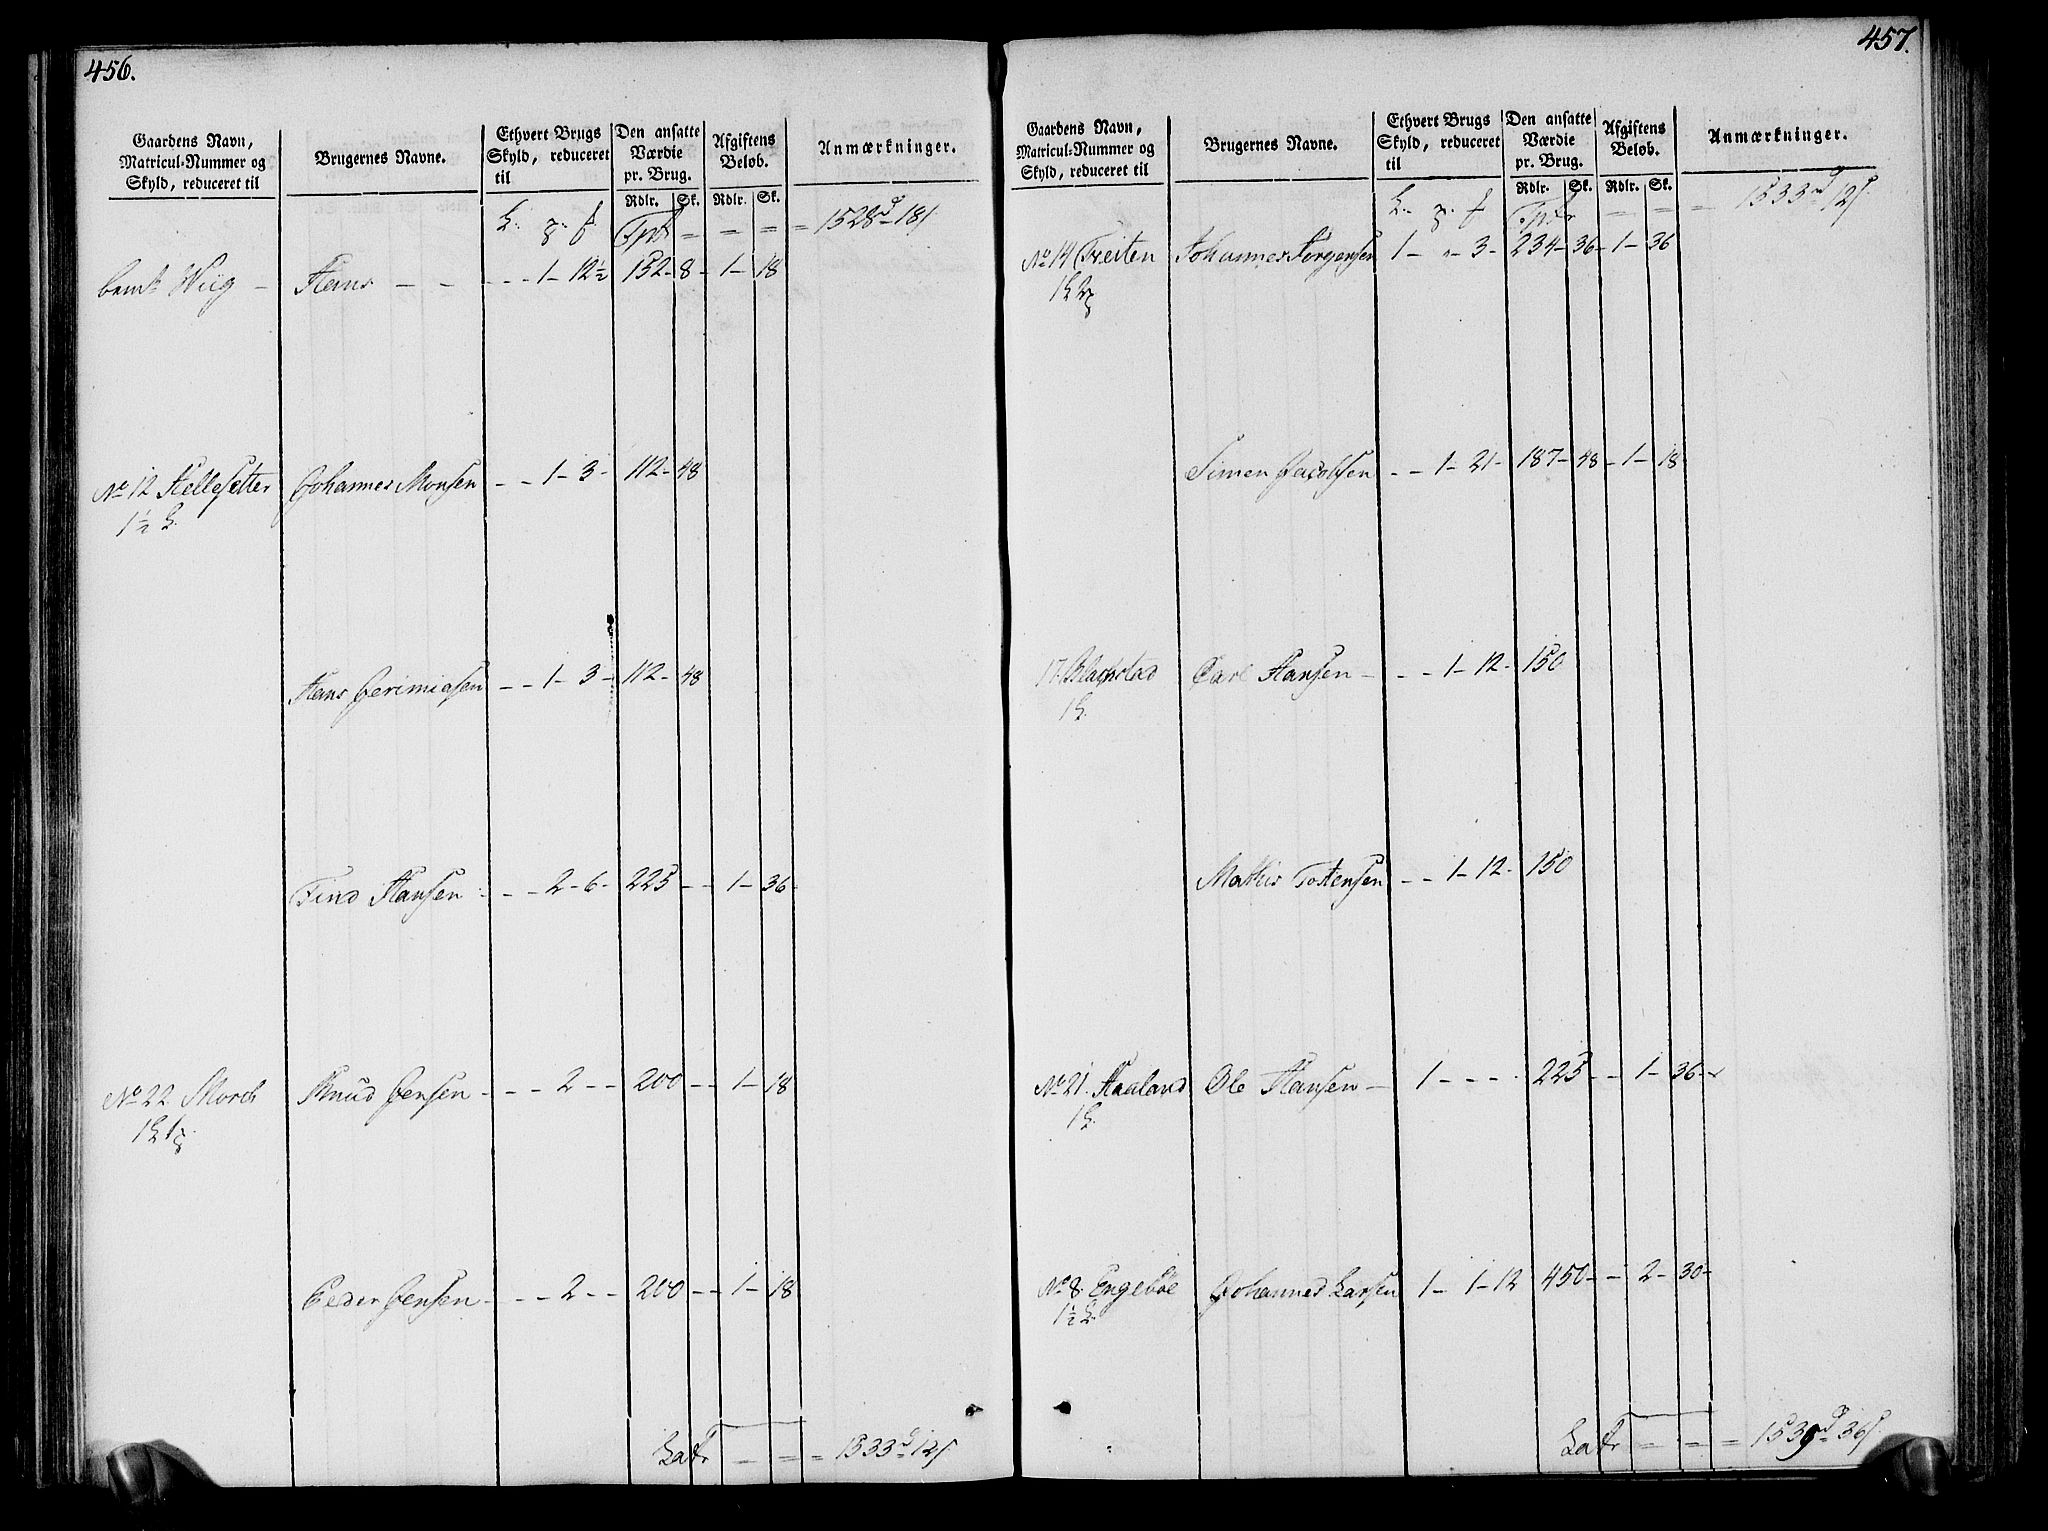 456.
Gaardens Navn, Matricul-Nummer og Skyld, reduceret til | Brugernes Navne. | Ethvert Brugs Skyld, reduceret til | Den ansatte Værdie pr. Brug. | Afgiftens Beløb. | Anmærkninger.
Rdlr. | Sk. | Rdlr. | Sk.
Tpt = = = = 1528 18
Wiig - Hans - - - - 1 - 12½ 152 - 8 - 1 - 18
No 12 Hellesetter Johannes Monsen - - 1 - 3 - 112 - 48
1½
Hans Jerimiasen - - 1 - 3 - 112 - 48
Find Hansen - - 2 - 6 - 225 - - 1 - 36
No 22 Morch Knud Jensen - - - 2 - - 200 - - 1 - 18
Peder Jensen - - - 2 - - 200 - - 1 - 18
Latr = = = 1533 12
457.
Gaardens Navn, Matricul-Nummer og Skyld, reduceret til | Brugernes Navne. | Ethvert Brugs Skyld, reduceret til | Den ansatte Værdie pr. Brug. | Afgiftens Beløb. | Anmærkninger.
Rdlr. | Sk. | Rdlr. | Sk.
= = = 1533 12
No 14 Treiten Johannes Torgersen 1 - " - 3 - 234 - 36 - 1 - 36
Simen Jacobsen - - 1 - 21 - 187 - 48 - 1 - 18
17. Blachstad Carl Hansen - - - 1 - 12 - 150
Mathis Tostensen - - 1 - 12 - 150
No 21. Haaland Ole Hansen - 1 - - - 225 - - 1 - 36
No 8. Engebøe Johannes Larsen 1 - 1 - 12 450 - - 2 - 30 -
1½
Latr = = = 1539 36